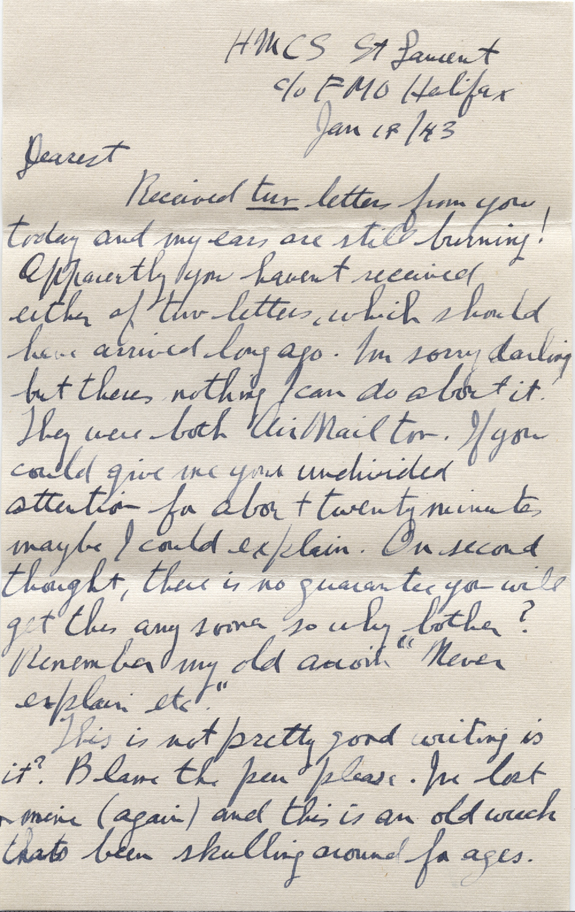 HMCS St Laurent
c/o FMO Halifax
Jan 18/43
Dearest
Received two letters from you
today and my ears are still burning!
Apparently you havent received
either of two letters, which should
have arrived long ago. Im sorry darling
but theres nothing I can do about it.
They were both Air Mail too. If you
could give me your undivided
attention for about twenty minutes
maybe I could explain. On second
thought, there is no guarantee you will
get this any sooner so why bother?
Remember my old axiom "Never
explain etc."
This is not pretty good writing is
it? Blame the pen please. Ive lost
mine (again) and this is an old wreck
thats been skulling around for ages.